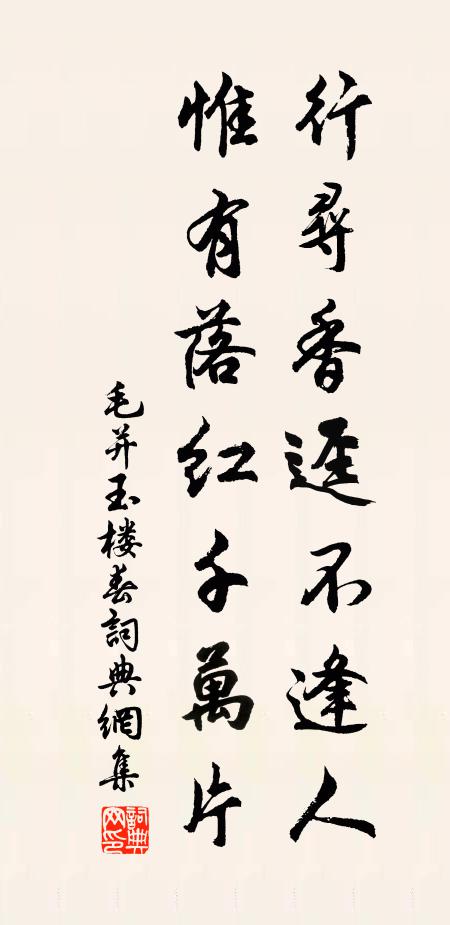 行尋香逕不逢人
惟有落红千萬片
毛并玉楼春詞典網集
詞典网印